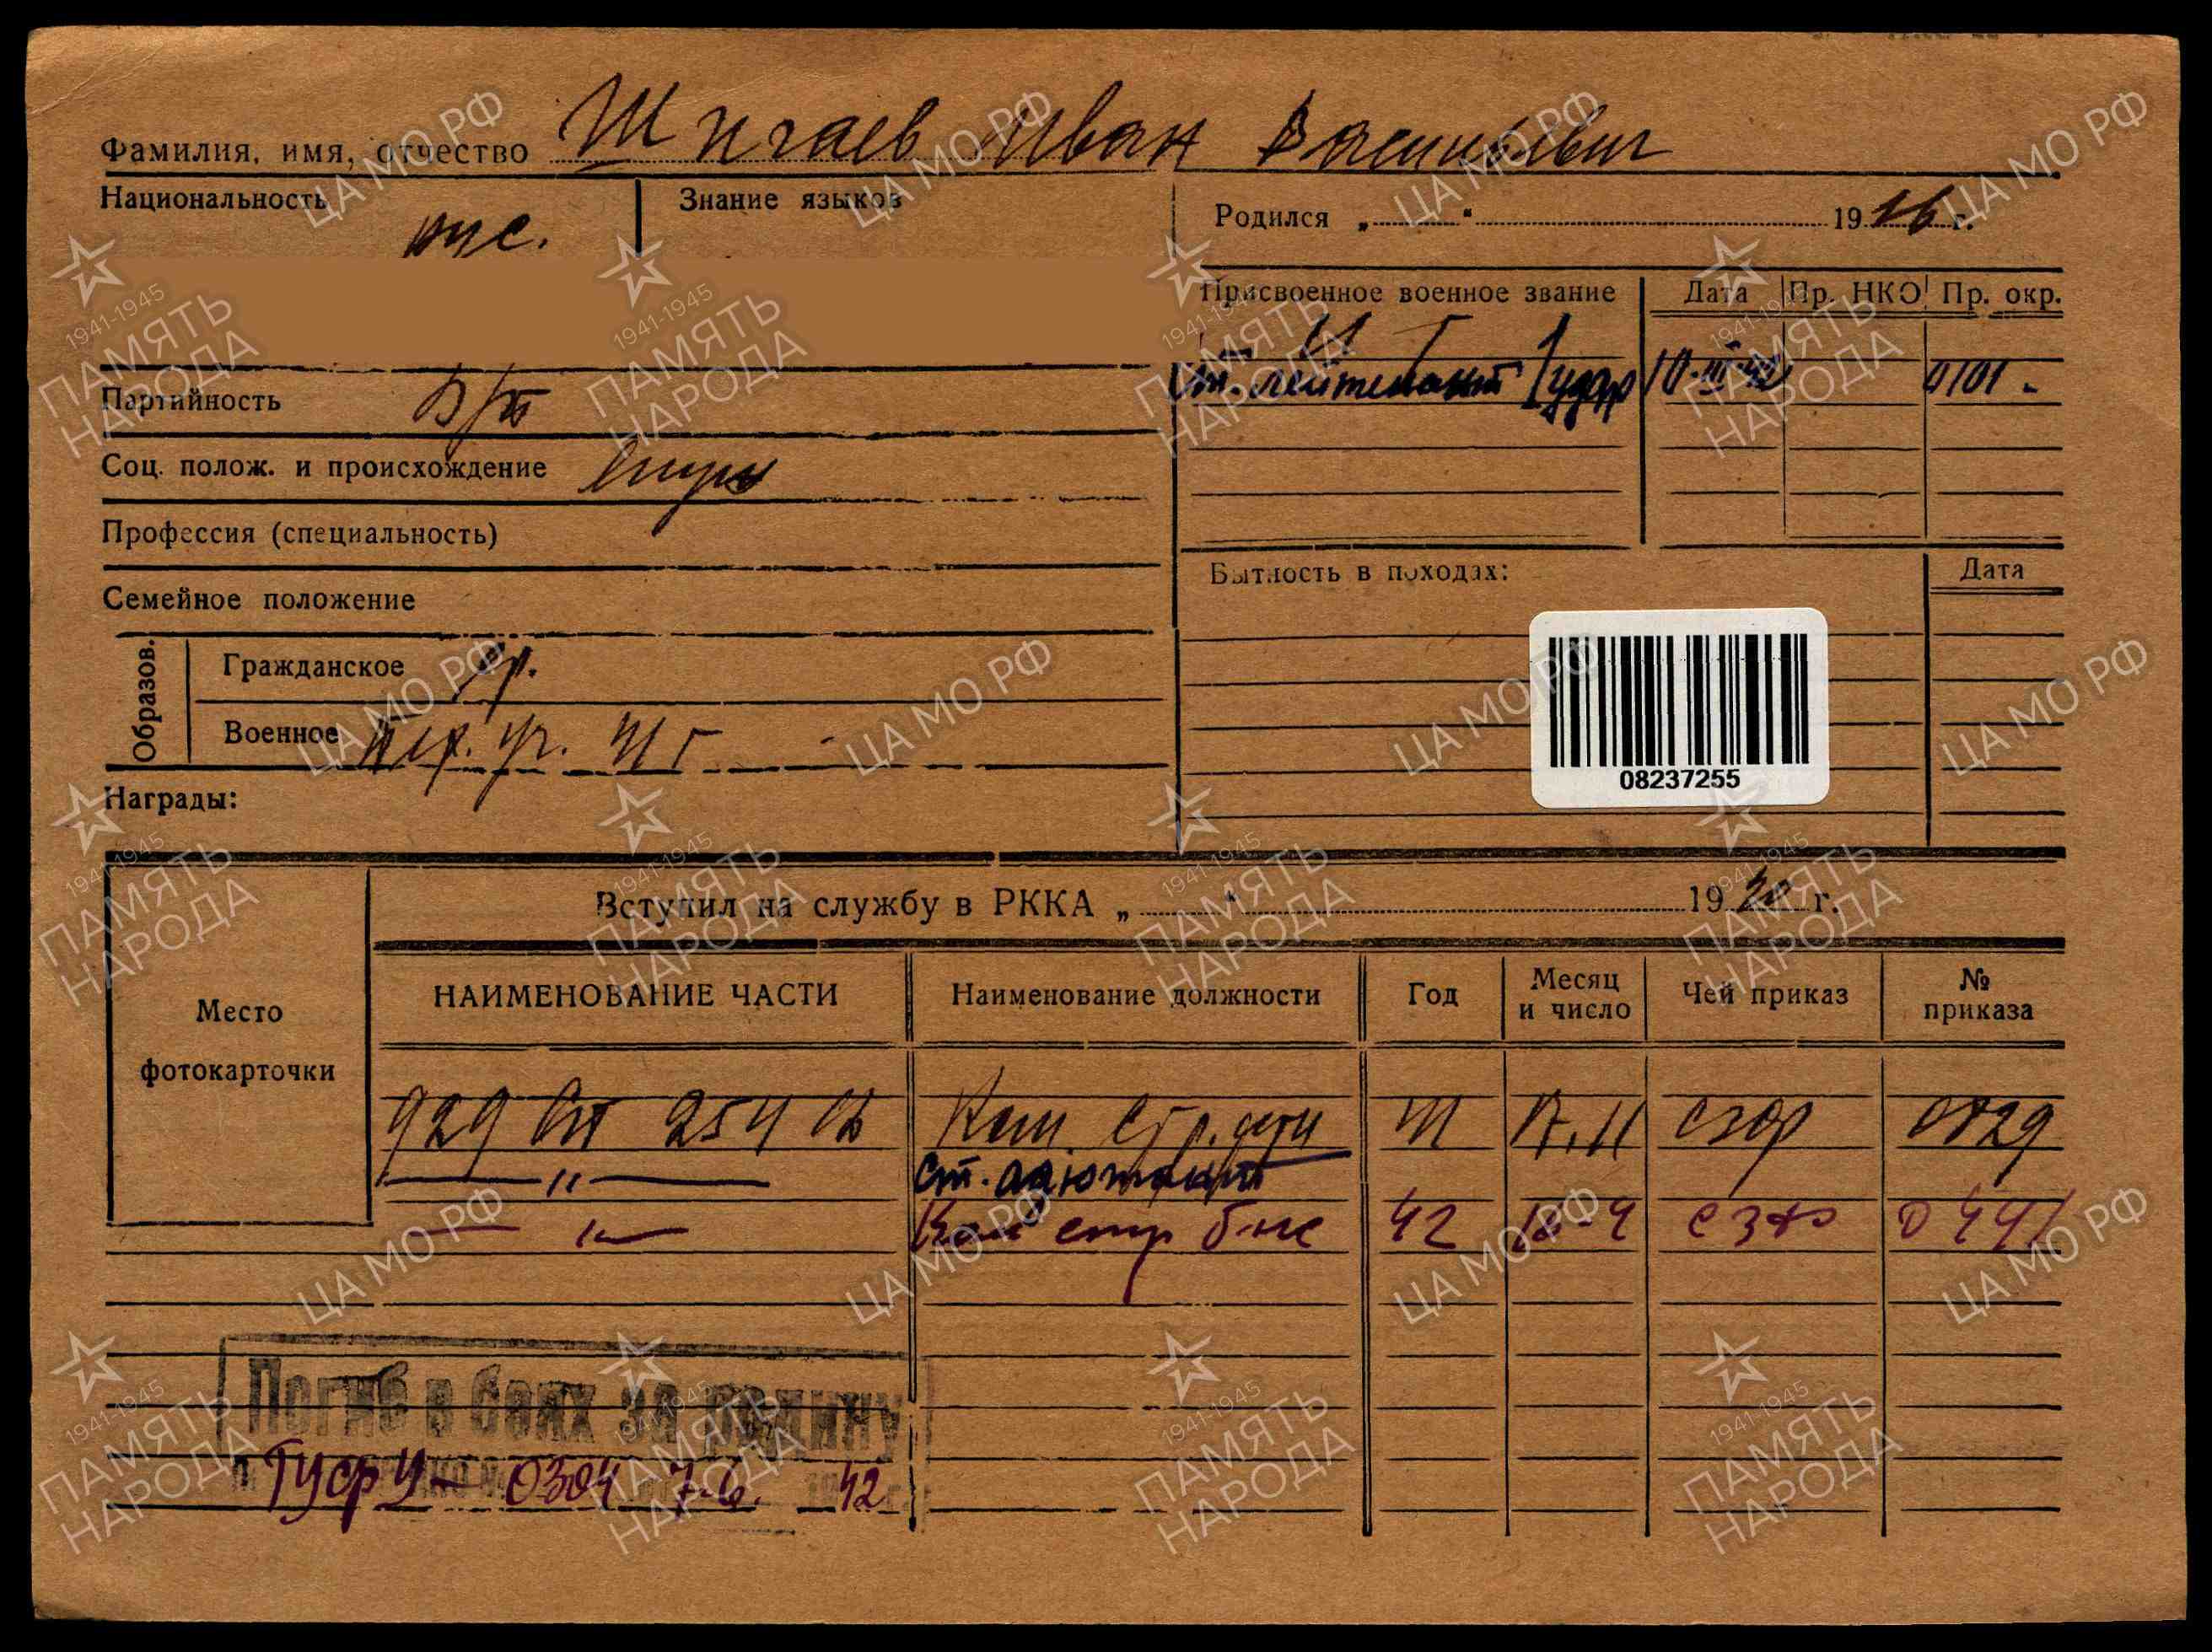 Фамилия, имя, отчество Шигаев Иван Васильевич
Национальность рус.
Знание языков
Родился „ “ 1916 г.
Присвоенное военное звание
Дата
Пр. НКО
Пр. окр.
ст. лейтенант 1 удар 10-III-42 0101 -
Партийность б/п
Соц. полож. и происхождение
Профессия (специальность)
Семейное положение
Бытность в походах:
Дата
Образов.
Гражданское ср.
Военное пех. уч.
Награды:
08237255
Вступил на службу в РККА „ “ 19 г.
Место фотокарточки
НАИМЕНОВАНИЕ ЧАСТИ
Наименование должности
Год
Месяц и число
Чей приказ
№ приказа
929 сп 254 сд Ком. стр. роты 41 17.11 СЗФ 0729
— " — ст. адютант
— " — Ком стр б-на 42 18-4 СЗФ 0441
Погиб в боях за родину
ГУФУ - 0304 7-6. 42
ЦА МО РФ
1941-1945
ПАМЯТЬ НАРОДА